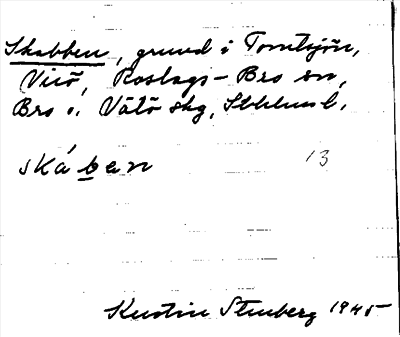 Skabben, grund i Tomtsjön,
Visö, Roslags-Bro sn,
Bro o. Vätö skg, Sthlms l.
skában 13
Kerstin Stenberg 1945